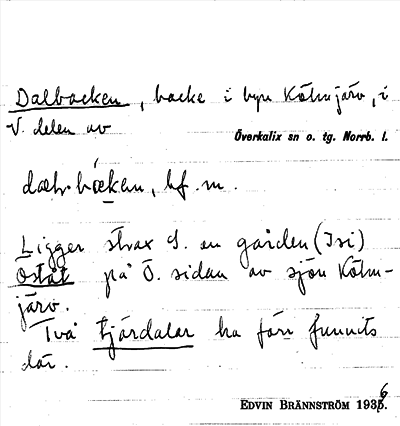 Dalbacken, backe i byn Kölmjärv, i
V. delen av
Överkalix sn o. tg. Norrb. l.
bf. m.
Ligger strax S. om gården (Isi)
Östat på Ö. sidan av sjön Kölm-
järv.
Två tjärdalar ha förr funnits
där.
EDVIN BRÄNNSTRÖM 1936.